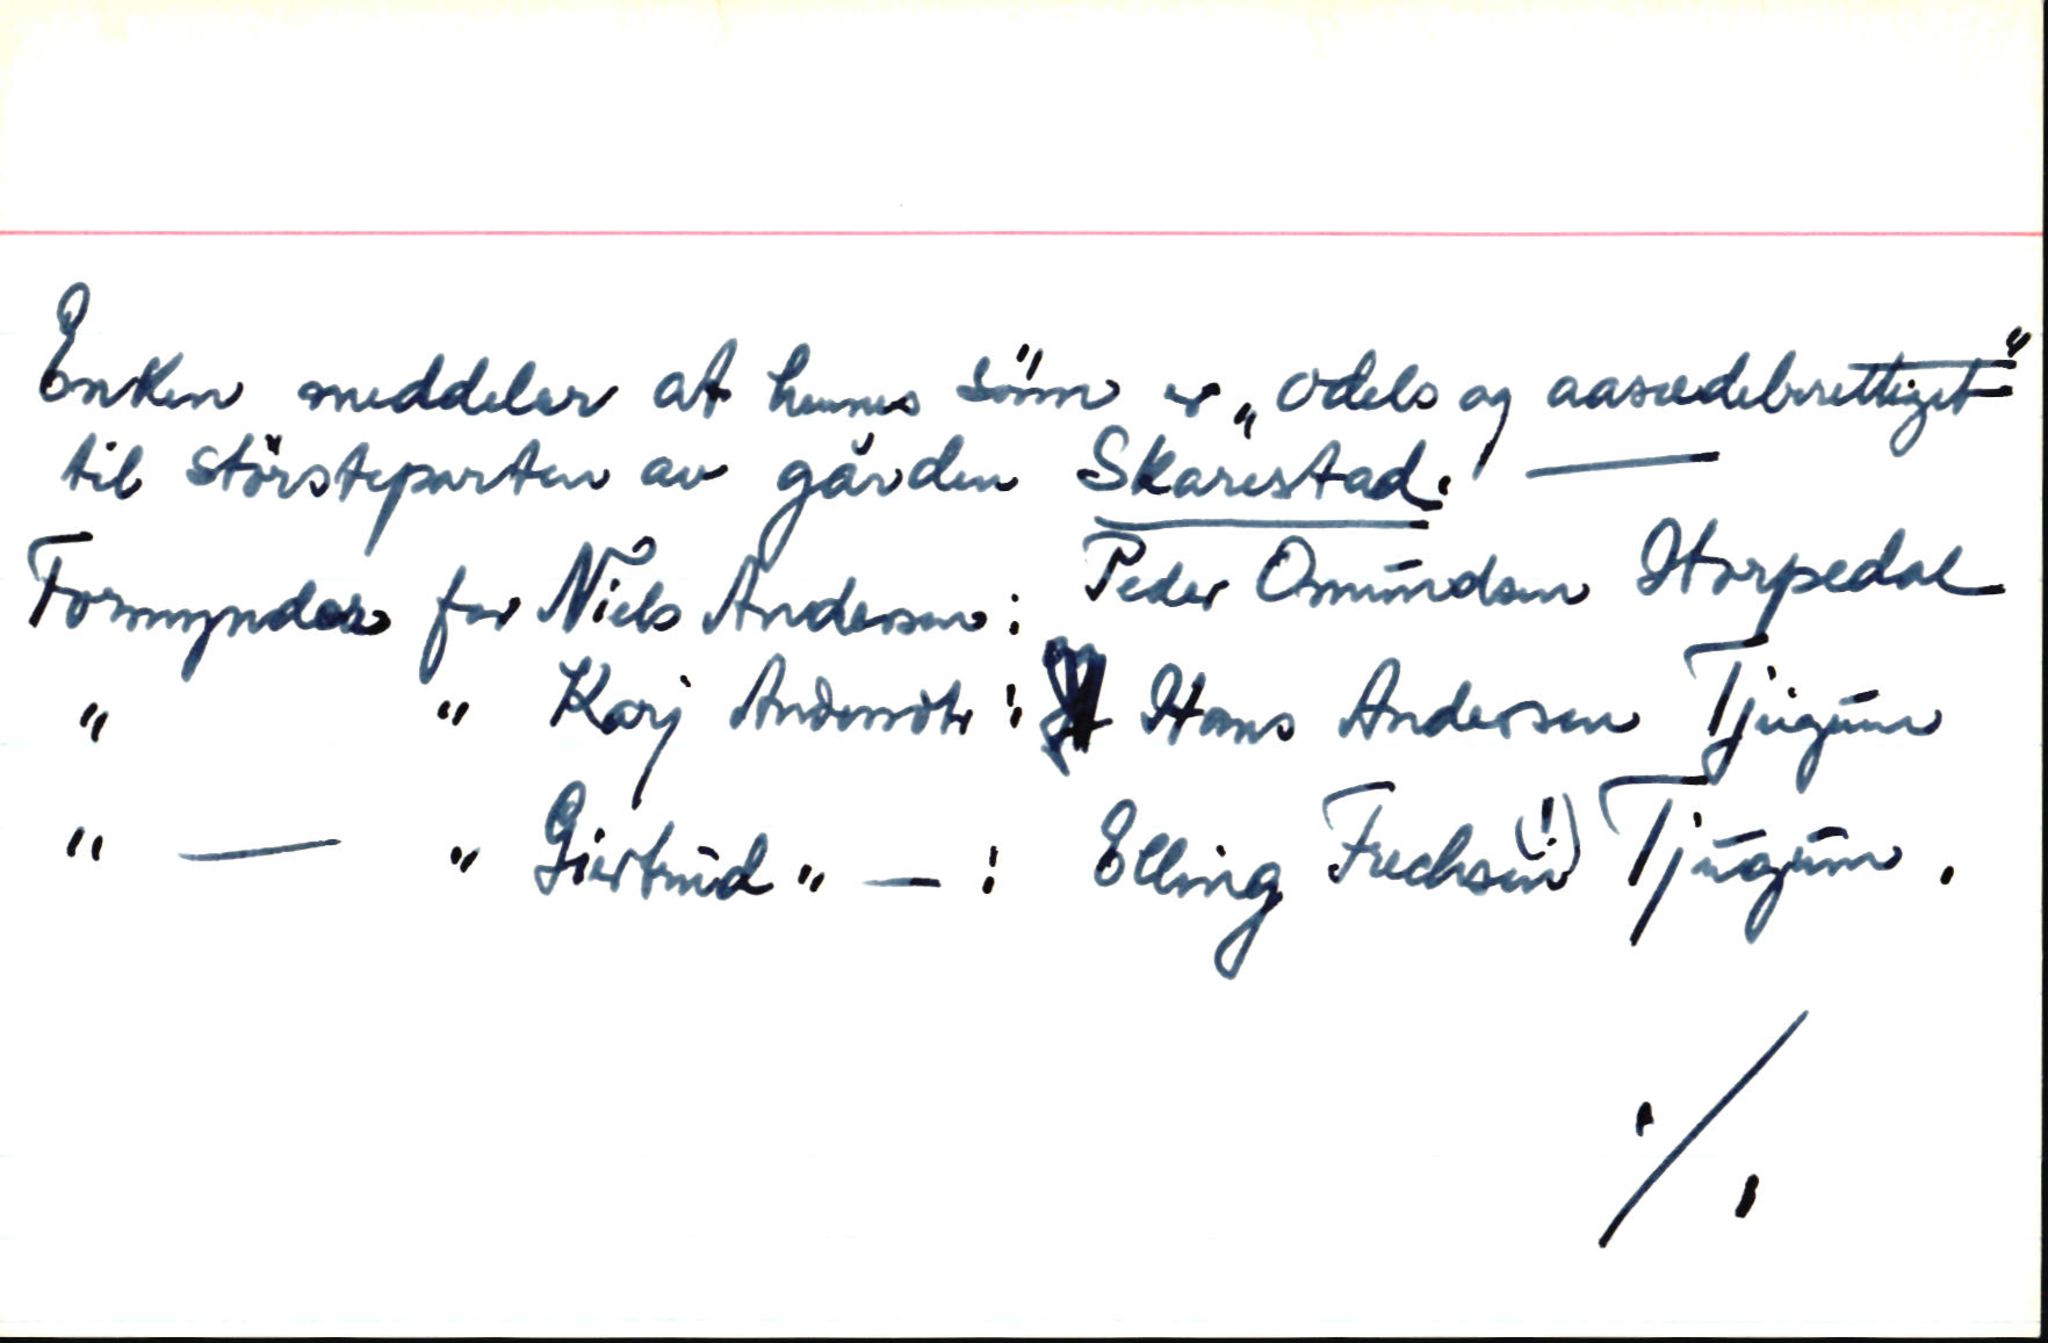 Enken meddeler at hennes sönn er „odels og aasædesberettiget“
til störsteparten av gården Skarestad. —
Formynder for Niels Andersen: Peder Omundsen Horpedal
" " Karj Andersdtr: Hans Andersen Tjugum
" — " Giertrud " — : Elling Frechsen (!) Tjugum.
./.